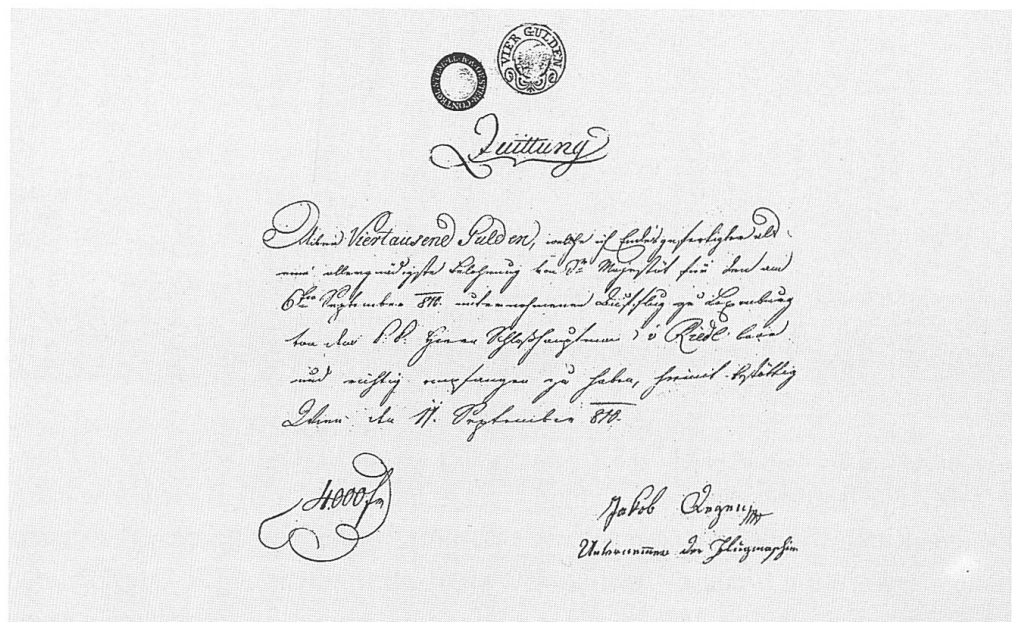 VIER GULDEN
Quittung
Über Viertausend Gulden, welche ich Endesgefertigter als
eine allergnädigste Belohnung von Sr Majestät für den am
6ten September 810. unternommenen Luftflug zu Laxenburg
von dem Herrn Schloßhauptmann v Riedl baar
und richtig empfangen zu haben, hiemit bestättig
Wien den 17. September 810.
4000 f
Jakob Degen
Unternemmer der Flugmaschin